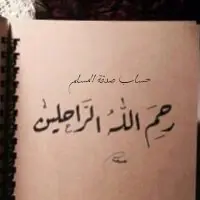 حساب صدقة المسلم
رحِمَ اللهُ الرَّاحلين